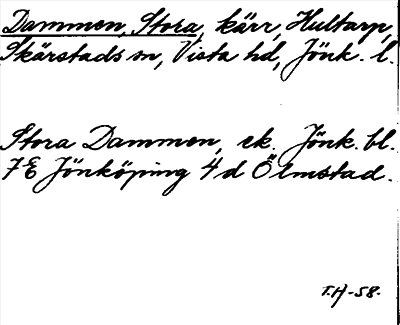 Dammen, Stora, kärr, Hultarp,
Skärstads sn, Vista hd, Jönk. l.
Stora Dammen, ek. Jönk. bl.
7E Jönköping 4d Ölmstad.
T.H-58.